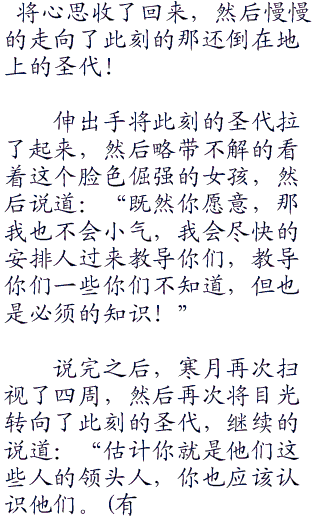 将心思收了回来，然后慢慢
的走向了此刻的那还倒在地
上的圣代！
伸出手将此刻的圣代拉
了起来，然后略带不解的看
着这个脸色倔强的女孩，然
后说道：“既然你愿意，那
我也不会小气，我会尽快的
安排人过来教导你们，教导
你们一些你们不知道，但也
是必须的知识！”
说完之后，寒月再次扫
视了四周，然后再次将目光
转向了此刻的圣代，继续的
说道：“估计你就是他们这
些人的领头人，你也应该认
识他们。(有